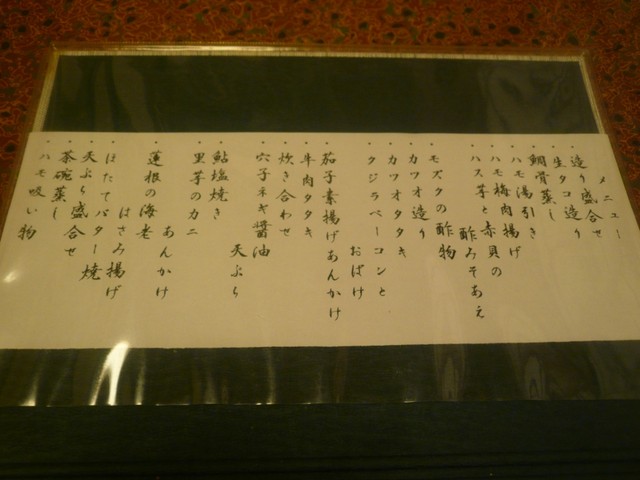 メニュー
・造り盛合せ
・生タコ造り
・鯛骨蒸し
・ハモ湯引き
・ハモ梅肉揚げ
・ハス芋と赤貝の
酢みそあえ
・モズクの酢物
・カツオ造り
・カツオタタキ
・クジラベーコンと
おばけ
・茄子素揚げあんかけ
・牛肉タタキ
・炊き合わせ
・穴子ネギ醤油
天ぷら
・鮎塩焼き
・里芋のカニ
あんかけ
・蓮根の海老
はさみ揚げ
・ほたてバター焼
・天ぷら盛合せ
・茶碗蒸し
・ハモ吸い物